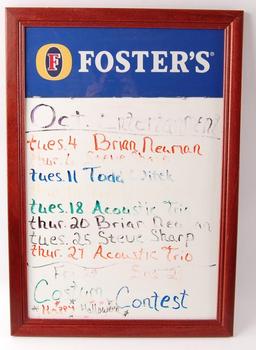 F FOSTER'S®
Oct.
tues. 4 Brian Neuman
thur. 6 Steve Sharp
tues. 11 Todd
tues. 18 Acoustic Trio
thur. 20 Brian Neuman
tues. 25 Steve Sharp
thur. 27 Acoustic Trio
Costum Contest
*Happy Halloween*